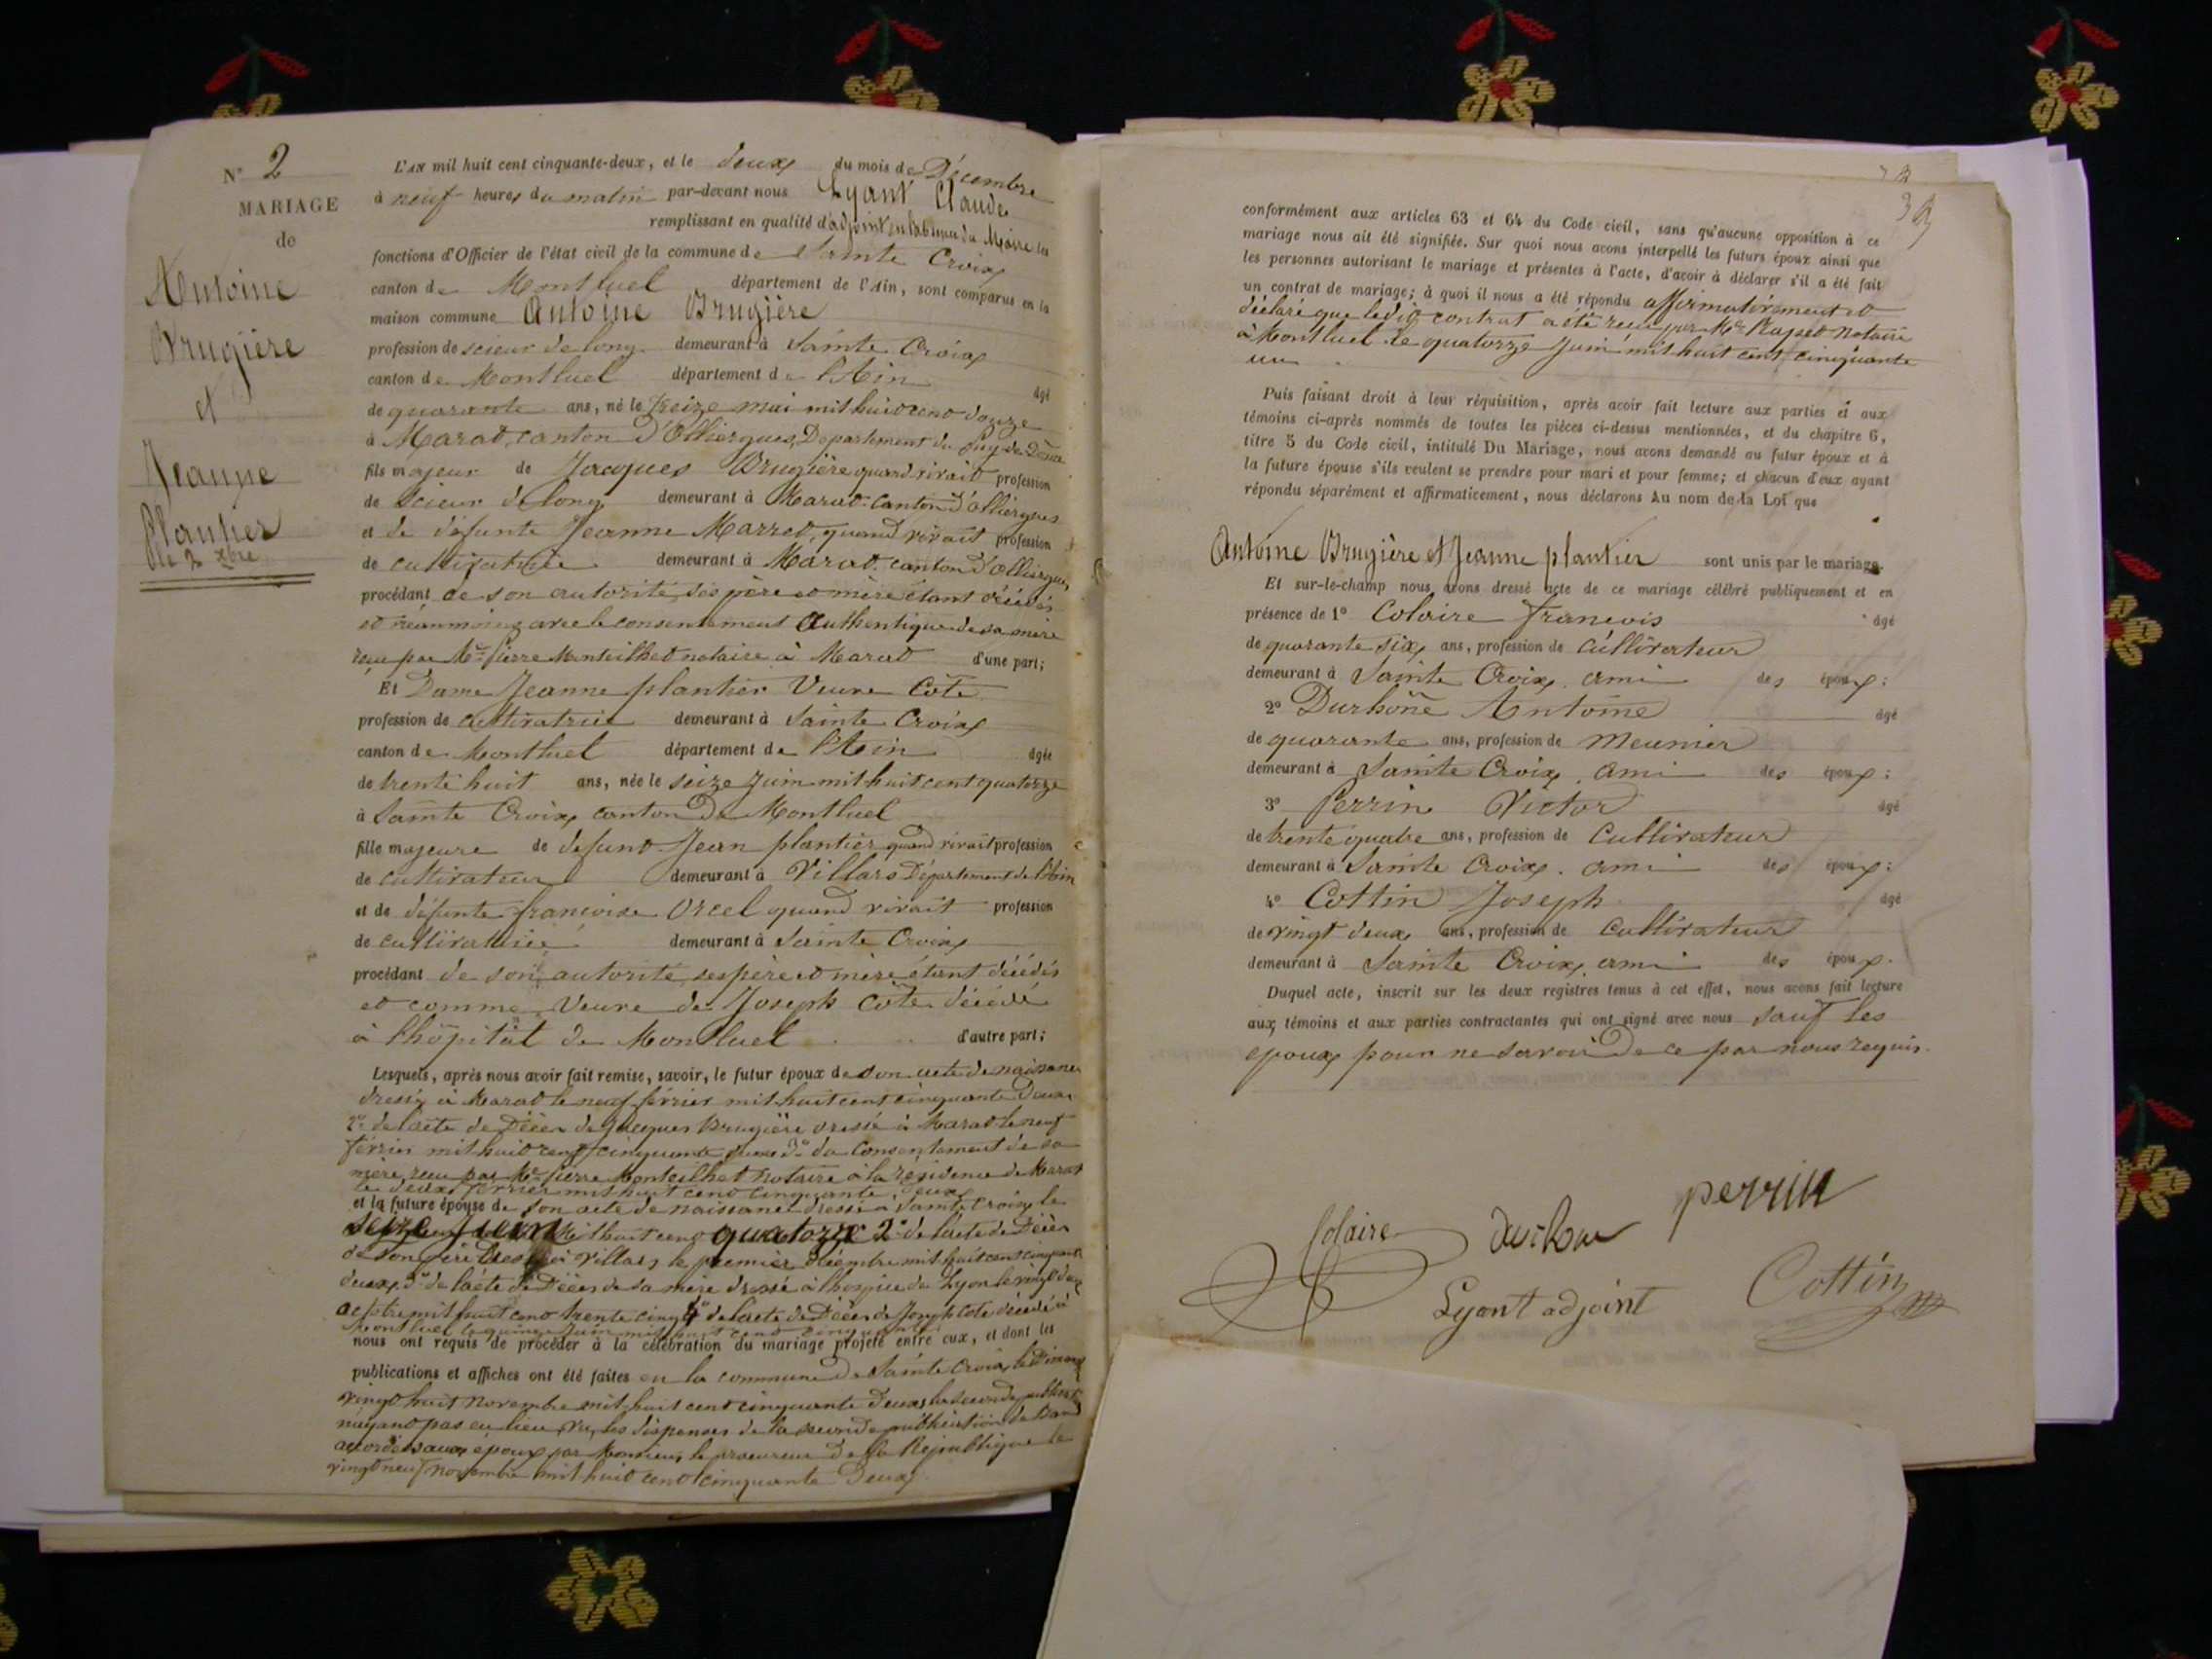 N° 2
MARIAGE
de
Antoine
Brugière
et
Jeanne
Plantier
le 2 xbre
L'AN mil huit cent cinquante-deux, et le deux du mois de Décembre
à neuf heures du matin par-devant nous Lyant Claude
remplissant en qualité d'adjoint en l'absence du Maire les
fonctions d'Officier de l'état civil de la commune de Sainte Croix
canton de Montluel département de l'Ain, sont comparus en la
maison commune Antoine Brugière
profession de scieur de long demeurant à Sainte Croix
canton de Montluel département de l'Ain âgé
de quarante ans, né le treize mai mil huit cent douze
à Marat, canton d'Olliergues, Département du Puy de Dôme
fils majeur de Jacques Brugière quand vivait profession
de scieur de long demeurant à Marat canton d'Olliergues
et de défunte Jeanne Marret, quand vivait profession
de cultivatrice demeurant à Marat canton d'Olliergues
procédant de son autorité, ses père et mère étant décédés
et néanmoins avec le consentement authentique de sa mère
reçu par Me Pierre Monteilhet notaire à Marat d'une part;
Et Dame Jeanne plantier Veuve Côte
profession de cultivatrice demeurant à Sainte Croix
canton de Montluel département de l'Ain âgée
de trente huit ans, née le seize juin mil huit cent quatorze
à Sainte Croix canton de Montluel
fille majeure de défunt Jean plantier quand vivait profession
de cultivateur demeurant à Villars Département de l'Ain
et de défunte françoise Orcel quand vivait profession
de cultivatrice demeurant à Sainte Croix
procédant de son autorité, ses père et mère étant décédés
et comme Veuve de Joseph Côte décédé
à l'hôpital de Montluel d'autre part;
Lesquels, après nous avoir fait remise, savoir, le futur époux de son acte de naissance
dressé à Marat le neuf février mil huit cent cinquante deux
2° de l'acte de Décès de Jacques Brugière dressé à Marat le neuf
février mil huit cent cinquante deux 3° du Consentement de sa
mère, reçu par Me Pierre Monteilhet notaire à la résidence de Marat
le deux février mil huit cent cinquante deux
et la future épouse de son acte de naissance dressé à Sainte Croix le
seize juin mil huit cent quatorze 2° de l'acte de Décès
de son père dressé à Villars le premier décembre mil huit cent cinquante
deux, 3° de l'acte de Décès de sa mère dressé à l'hospice de Lyon le vingt deux
octobre mil huit cent trente cinq 4° de l'acte de Décès de Joseph Côte décédé à
Montluel le quinze juin mil huit cent cinquante
nous ont requis de procéder à la célébration du mariage projeté entre eux, et dont les
publications et affiches ont été faites en la commune de Sainte Croix le Dimanche
vingt huit novembre mil huit cent cinquante deux la seconde publication
n'ayant pas eu lieu, vu les dispenses de la seconde publication de bans
accordées aux époux par Monsieur le procureur de la République le
vingt neuf novembre mil huit cent cinquante deux
conformément aux articles 63 et 64 du Code civil, sans qu'aucune opposition à ce
mariage nous ait été signifiée. Sur quoi nous avons interpellé les futurs époux ainsi que
les personnes autorisant le mariage et présentes à l'acte, d'avoir à déclarer s'il a été fait
un contrat de mariage; à quoi il nous a été répondu affirmativement et
déclaré que ledit contrat a été reçu par Me Rapet notaire
à Montluel le quatorze Juin mil huit cent cinquante
un
Puis faisant droit à leur réquisition, après avoir fait lecture aux parties et aux
témoins ci-après nommés de toutes les pièces ci-dessus mentionnées, et du chapitre 6,
titre 5 du Code civil, intitulé Du Mariage, nous avons demandé au futur époux et à
la future épouse s'ils veulent se prendre pour mari et pour femme; et chacun d'eux ayant
répondu séparément et affirmativement, nous déclarons Au nom de la Loi que
Antoine Brugière et Jeanne plantier sont unis par le mariage.
Et sur-le-champ nous avons dressé acte de ce mariage célébré publiquement et en
présence de 1° Colaire françois âgé
de quarante six ans, profession de cultivateur
demeurant à Sainte Croix ami des époux;
2° Durhône Antoine âgé
de quarante ans, profession de meunier
demeurant à Sainte Croix ami des époux;
3° Perrin Victor âgé
de trente quatre ans, profession de Cultivateur
demeurant à Sainte Croix. ami des époux;
4° Cottin Joseph âgé
de vingt deux ans, profession de Cultivateur
demeurant à Sainte Croix ami des époux.
Duquel acte, inscrit sur les deux registres tenus à cet effet, nous avons fait lecture
aux témoins et aux parties contractantes qui ont signé avec nous sauf les
époux pour ne savoir de ce par nous requis.
perrin
Colaire
Cottin
Lyant adjoint